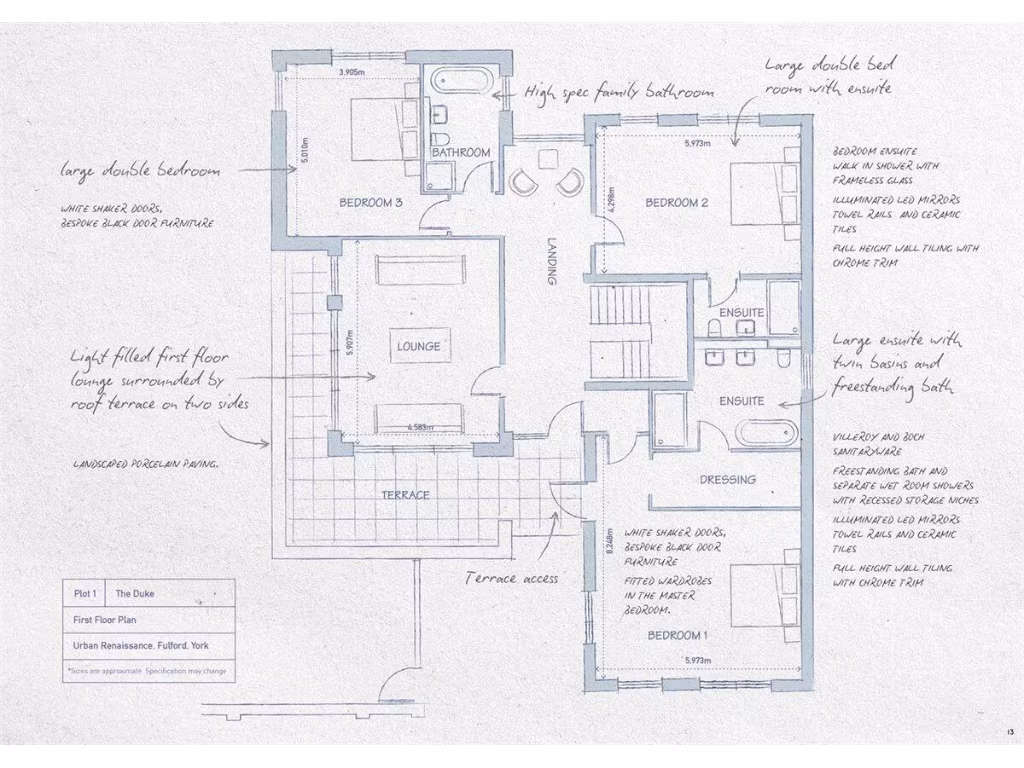 3.905m
5.010m
BATHROOM
BEDROOM 3
High spec family bathroom
Large double bed
room with ensuite
5.973m
4.298m
BEDROOM 2
BEDROOM ENSUITE
WALK IN SHOWER WITH
FRAMELESS GLASS
ILLUMINATED LED MIRRORS
TOWEL RAILS AND CERAMIC
TILES
FULL HEIGHT WALL TILING WITH
CHROME TRIM
large double bedroom
WHITE SHAKER DOORS,
BESPOKE BLACK DOOR FURNITURE
LANDING
ENSUITE
LOUNGE
5.907m
4.583m
Light filled first floor
lounge surrounded by
roof terrace on two sides
LANDSCAPED PORCELAIN PAVING.
Large ensuite with
twin basins and
freestanding bath
ENSUITE
VILLEROY AND BOCH
SANITARYWARE
FREESTANDING BATH AND
SEPARATE WET ROOM SHOWERS
WITH RECESSED STORAGE NICHES
ILLUMINATED LED MIRRORS
TOWEL RAILS AND CERAMIC
TILES
FULL HEIGHT WALL TILING
WITH CHROME TRIM
DRESSING
TERRACE
Terrace access
8.248m
WHITE SHAKER DOORS,
BESPOKE BLACK DOOR
FURNITURE
FITTED WARDROBES
IN THE MASTER
BEDROOM.
BEDROOM 1
5.973m
Plot 1 The Duke
First Floor Plan
Urban Renaissance, Fulford, York
*Sizes are approximate. Specification may change
13